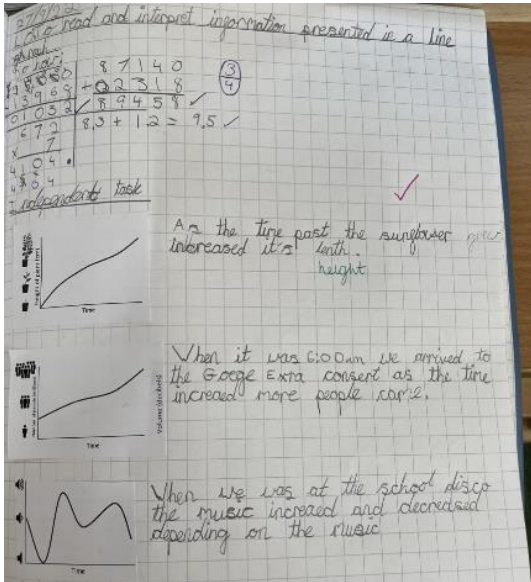 LO: To read and interpret information presented in a line
8 7 1 4 0
+ 0 2 3 1 8
8 9 4 5 8 ✓
3
4
8,3 + 1,2 = 9,5 ✓
6 7 2
x 7
Independent task
As the time past the sunflower grew
increased it's lenth.
height
Time
When it was 6:00am we arrived to
the Goege Exra consert as the time
increaed more people
Time
Volume (decibels)
When we was at the school disco
the music increaed and decreased
depending on the music
Time